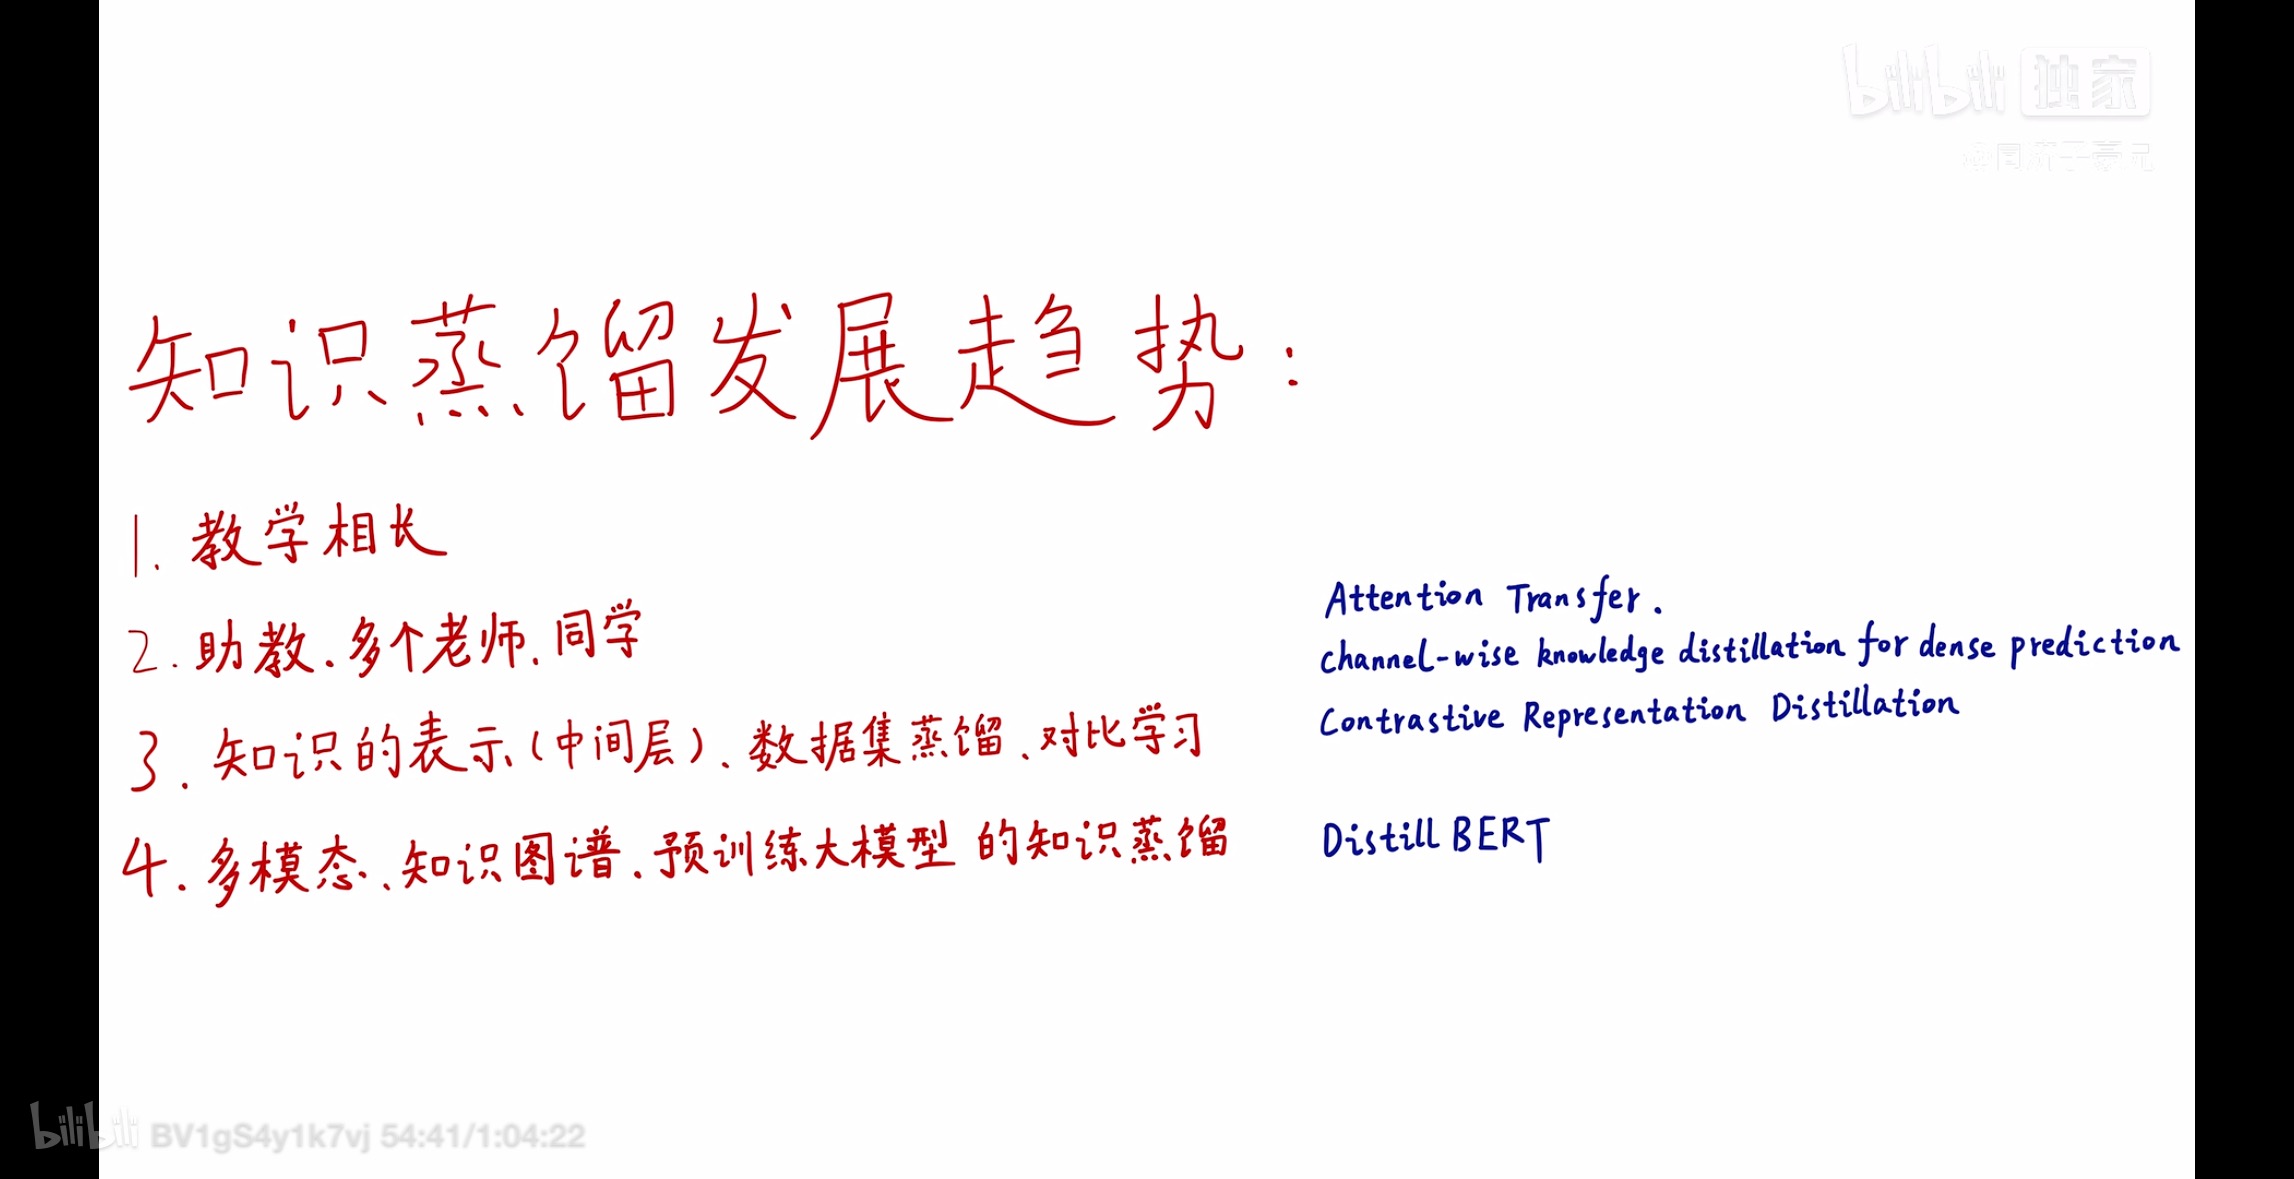 bilibili 独家
@同济子豪兄
知识蒸馏发展趋势：
1. 教学相长
2. 助教、多个老师、同学
3. 知识的表示（中间层）、数据集蒸馏、对比学习
4. 多模态、知识图谱、预训练大模型 的知识蒸馏
Attention Transfer.
channel-wise knowledge distillation for dense prediction
Contrastive Representation Distillation
Distill BERT
bilibili BV1gS4y1k7vj 54:41/1:04:22